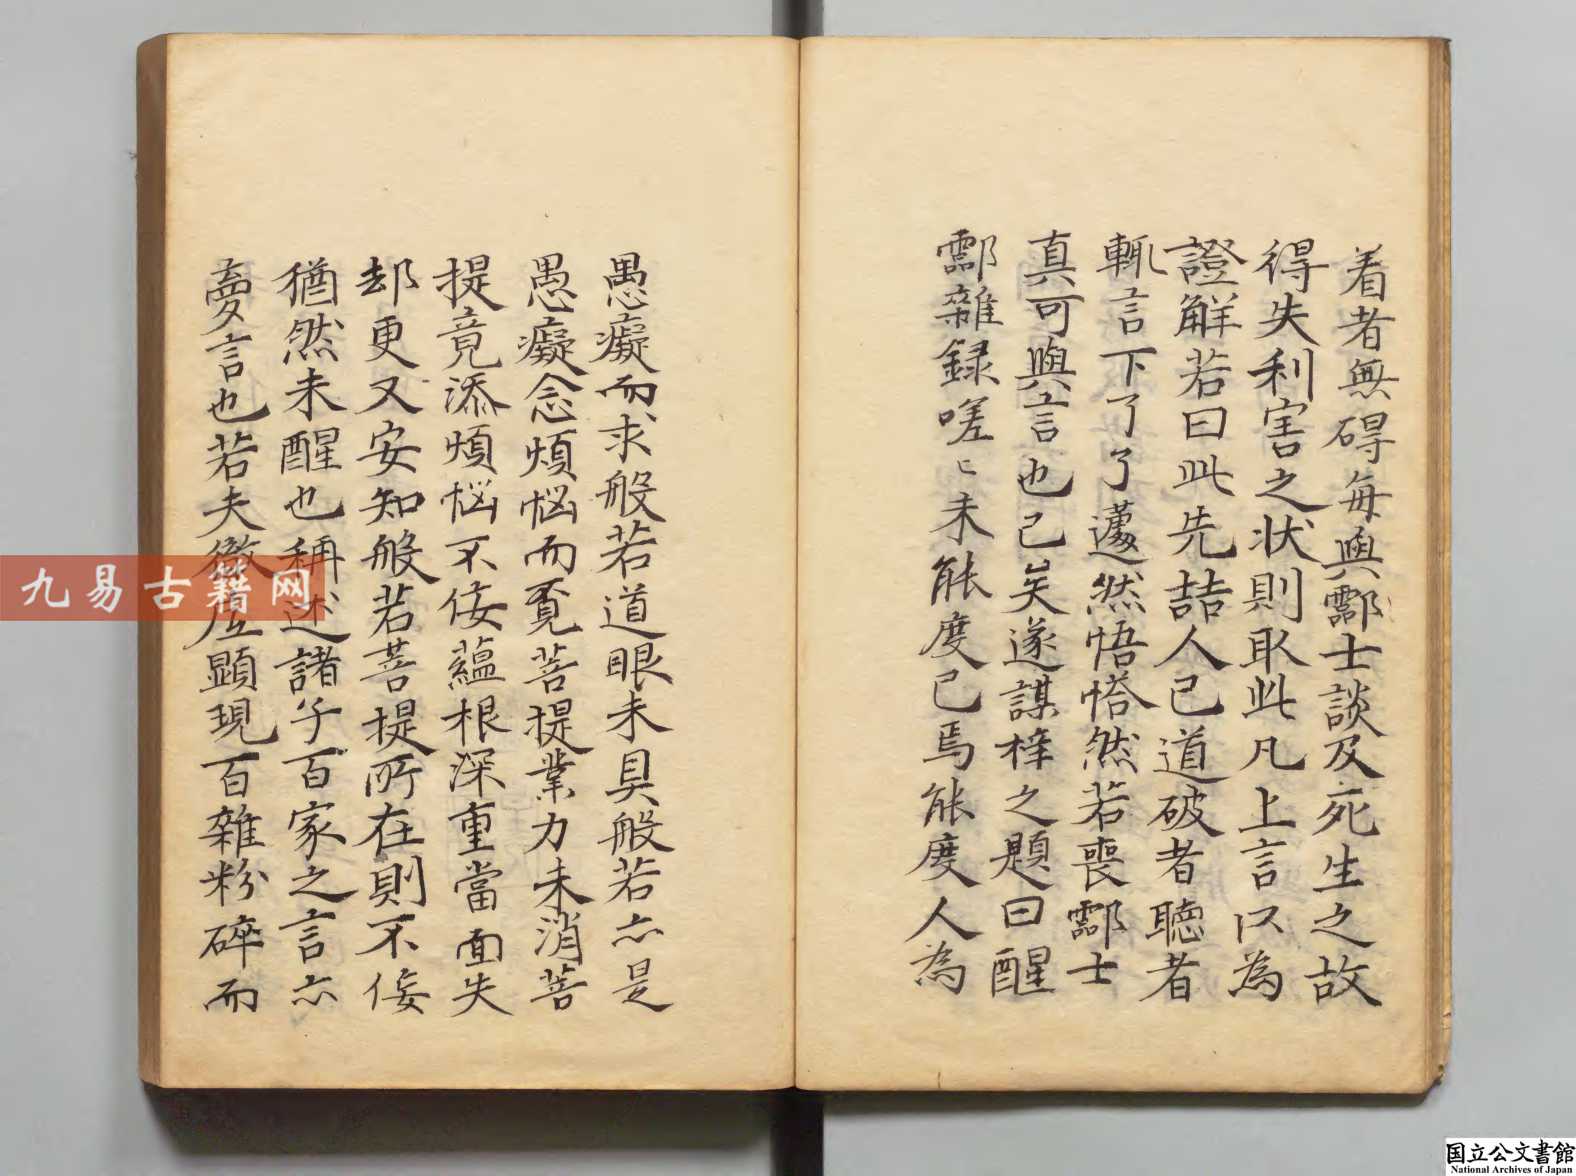 着者無碍每與酃士談及死生之故
得失利害之狀則取此凡上言以為
證解若曰此先喆人已道破者聽者
輒言下了了遽然悟嗒然若喪酃士
真可與言也已矣遂謀梓之題曰醒
酃雜録嗟〻未能度已焉能度人為
愚癡而求般若道眼未具般若亦是
愚癡念煩惱而覓菩提業力未消菩
提竟添煩惱不佞蘊根深重當面失
却更又安知般若菩提所在則不佞
猶然未醒也稱述諸子百家之言亦
夢言也若夫徹虛顕現百雜粉碎而
九易古籍网
国立公文書館
National Archives of Japan